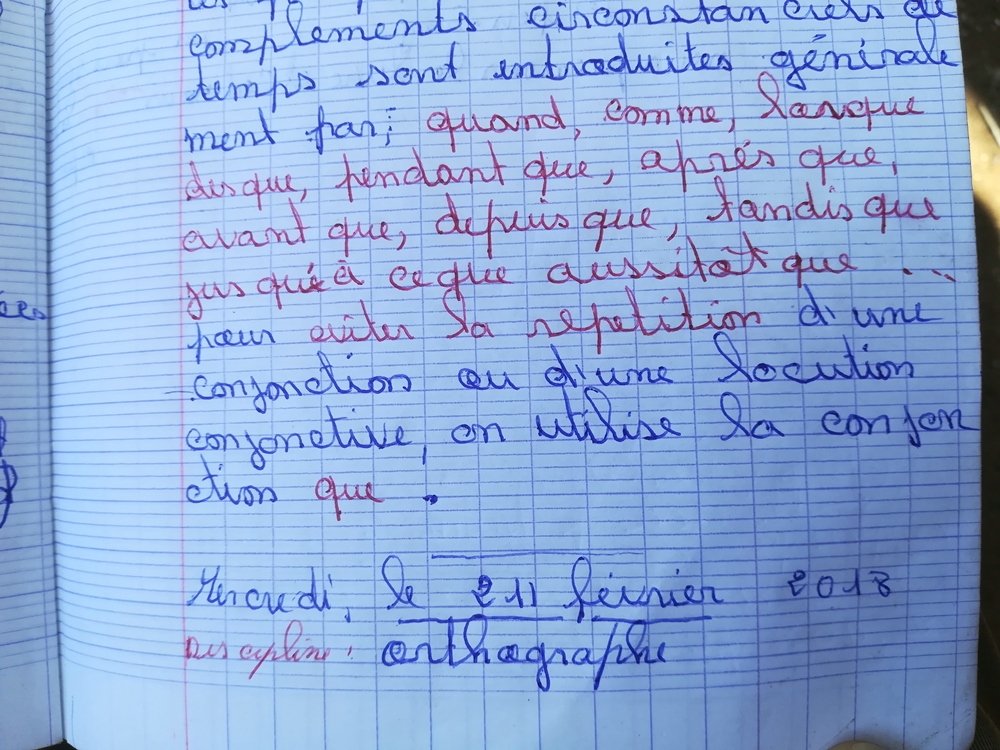 complements circonstanciels de
temps sont introduites générale
ment par; quand, comme, lorsque
dès que, pendant que, après que,
avant que, depuis que, tandis que
jusqu'à ce que aussitôt que ...
pour eviter la repetition d'une
conjonction ou d'une locution
conjonctive, on utilise la conjon
ction que .
Mercredi, le 211 février 2018
Discipline: orthographe